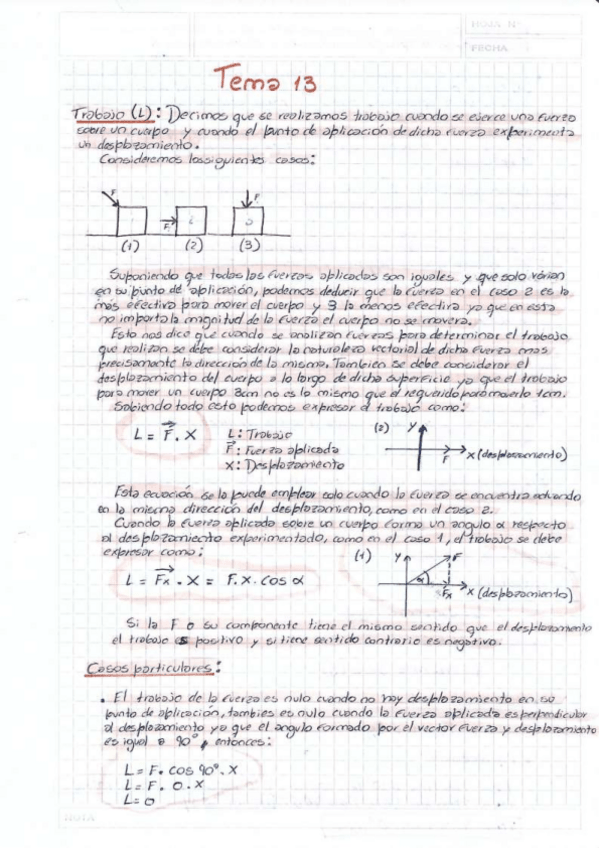 HOJA Nº
FECHA
Tema 13
Trabajo (L): Decimos que se realizamos trabajo cuando se ejerce una fuerza
sobre un cuerpo y cuando el punto de aplicación de dicha fuerza experimenta
un desplazamiento.
Consideremos los siguientes casos:
F F F
(1) (2) (3)
Suponiendo que todas las fuerzas aplicadas son iguales y que solo varían
en su punto de aplicación, podemos deducir que la fuerza en el caso 2 es la
más efectiva para mover el cuerpo y 3 la menos efectiva ya que en esta
no importa la magnitud de la fuerza el cuerpo no se movera.
Esto nos dice que cuando se analizan fuerzas para determinar el trabajo
que realizan se debe considerar la naturaleza vectorial de dicha fuerza mas
precisamente la dirección de la misma. También se debe considerar el
desplazamiento del cuerpo a lo largo de dicha superficie ya que el trabajo
para mover un cuerpo 3cm no es lo mismo que el requerido para moverlo 1cm.
Sabiendo todo esto podemos expresar al trabajo como:
L = F . X L: Trabajo (2) y
F: Fuerza aplicada F x (desplazamiento)
x: Desplazamiento
Esta ecuación se la puede emplear solo cuando la fuerza se encuentra actuando
en la misma dirección del desplazamiento, como en el caso 2.
Cuando la fuerza aplicada sobre un cuerpo forma un angulo α respecto
al desplazamiento experimentado, como en el caso 1, el trabajo se debe
expresar como:
(1) y F
L = Fx . X = F. X. cos α α Fx x (desplazamiento)
Si la F o su componente tiene el mismo sentido que el desplazamiento
el trabajo es positivo y si tiene sentido contrario es negativo.
Casos particulares:
• El trabajo de la fuerza es nulo cuando no hay desplazamiento en su
punto de aplicación, tambies es nulo cuando la fuerza aplicada es perpendicular
al desplazamiento ya que el angulo formado por el vector fuerza y desplazamiento
es igual a 90°, entonces:
L = F. cos 90°. X
L = F. 0 . X
L = 0
NOTA